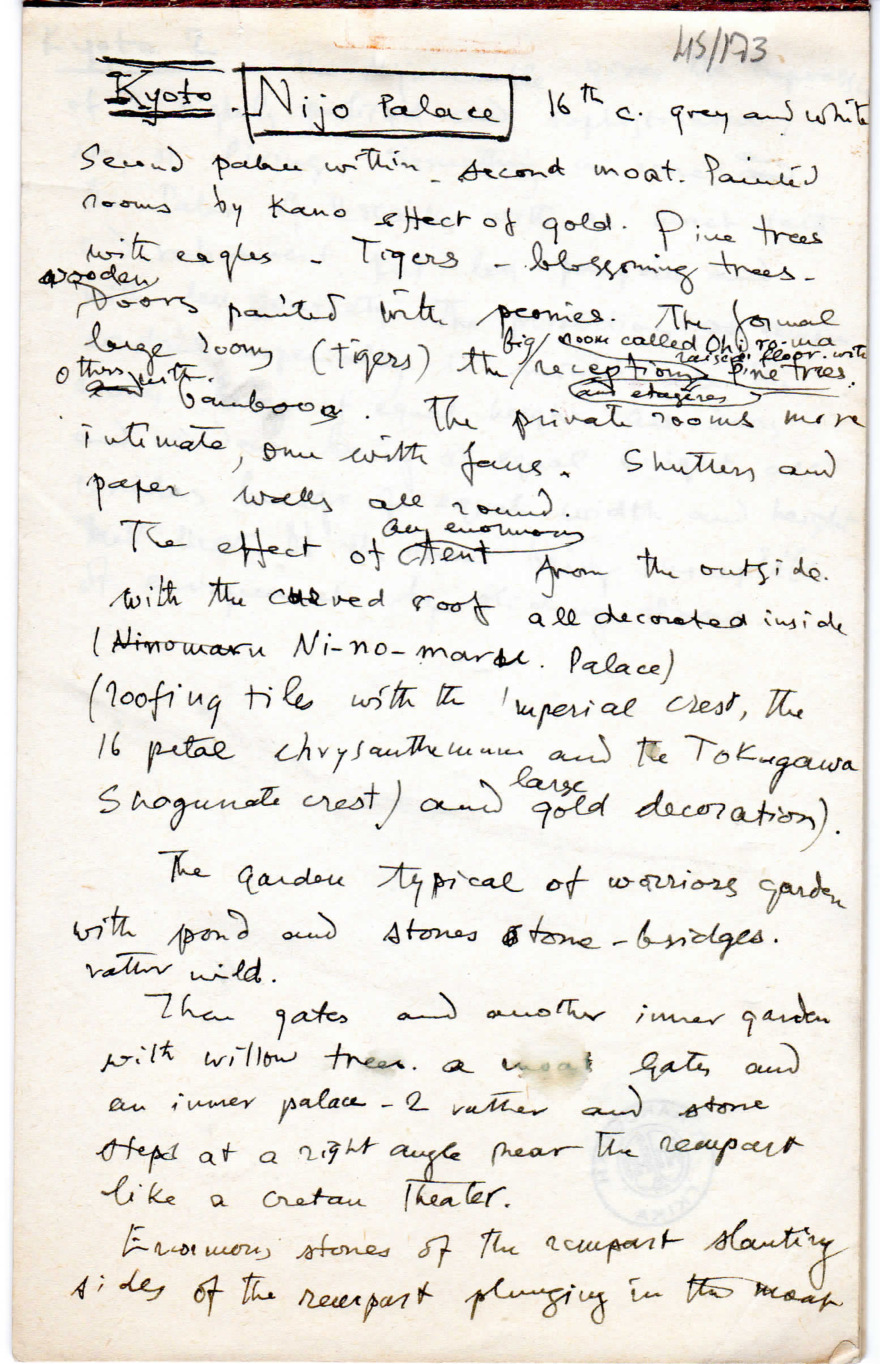 45/173
Kyoto. Nijo Palace 16th c. grey and white
Second palace within - second moat. Painted
rooms by Kano effect of gold. Pine trees
with eagles - Tigers - blossoming trees -
wooden
Doors painted with peonies. The formal
big room called Ohiroma
large rooms (tigers) the reception pine trees.
raised floor with
others with
and etagères
bamboos. The private rooms more
intimate, one with fans. Shutters and
paper walls all round.
any enormous
The effect of tent from the outside.
with the curved roof all decorated inside
(Ninomaru Ni-no-maru. Palace)
(roofing tiles with the imperial crest, the
16 petal chrysanthemum and the Tokugawa
large
Shogunate crest) and gold decoration).
The garden typical of worriors garden
with pond and stones stone-bridges.
rather wild.
Then gates and another inner garden
with willow trees. a moat gates and
an inner palace - 2 rather and stone
steps at a right angle near the rempart
like a cretan Theater.
Enormous stones of the rempart slanting
sides of the rempart plunging in the moat